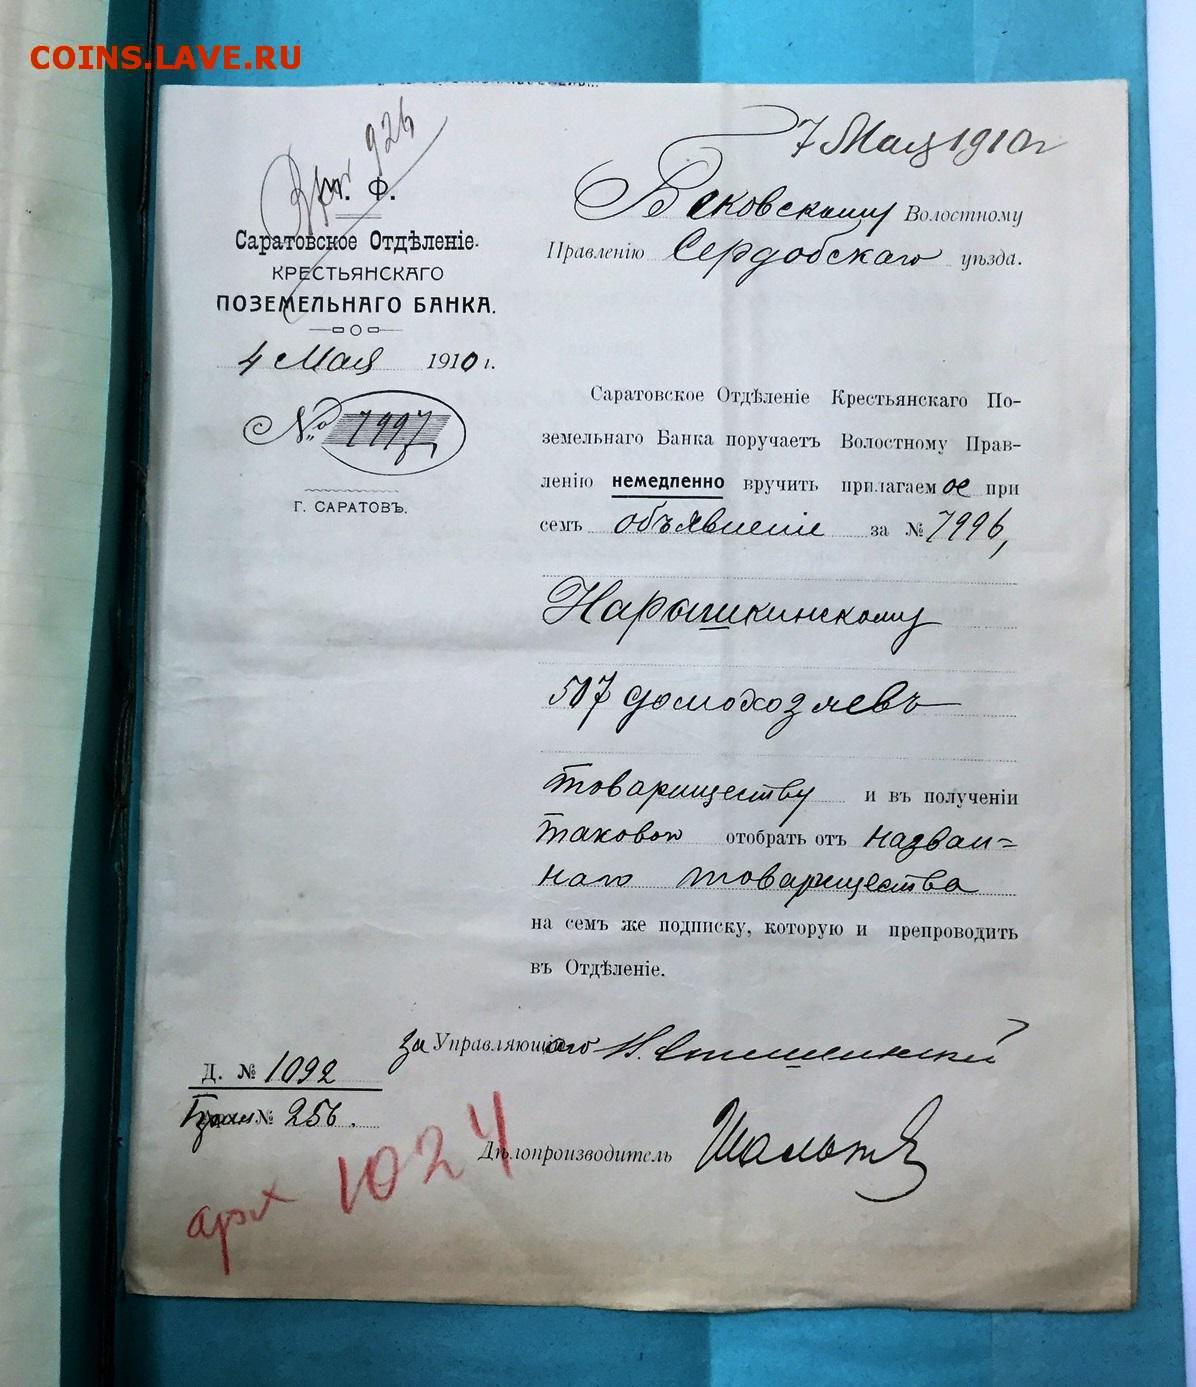 COINS.LAVE.RU
7 Мая 1910 г
926
М. Ф.
Саратовское Отдѣленіе
КРЕСТЬЯНСКАГО
ПОЗЕМЕЛЬНАГО БАНКА.
4 Мая 1910 г.
№ 7997
Г. САРАТОВЪ.
Бековскому Волостному
Правленію Сердобскаго уѣзда.
Саратовское Отдѣленіе Крестьянскаго По-
земельнаго Банка поручаетъ Волостному Прав-
ленію немедленно вручить прилагаемое при
семъ объявленіе за № 7996,
Нарышкинскому
507 домохозяевъ
товариществу и въ полученіи
таковою отобрать отъ назван=
наго товарищества
на семъ же подписку, которую и препроводить
въ Отдѣленіе.
за Управляющаго Н.
Д. № 1092
№ 256.
Дѣлопроизводитель
арх 1024